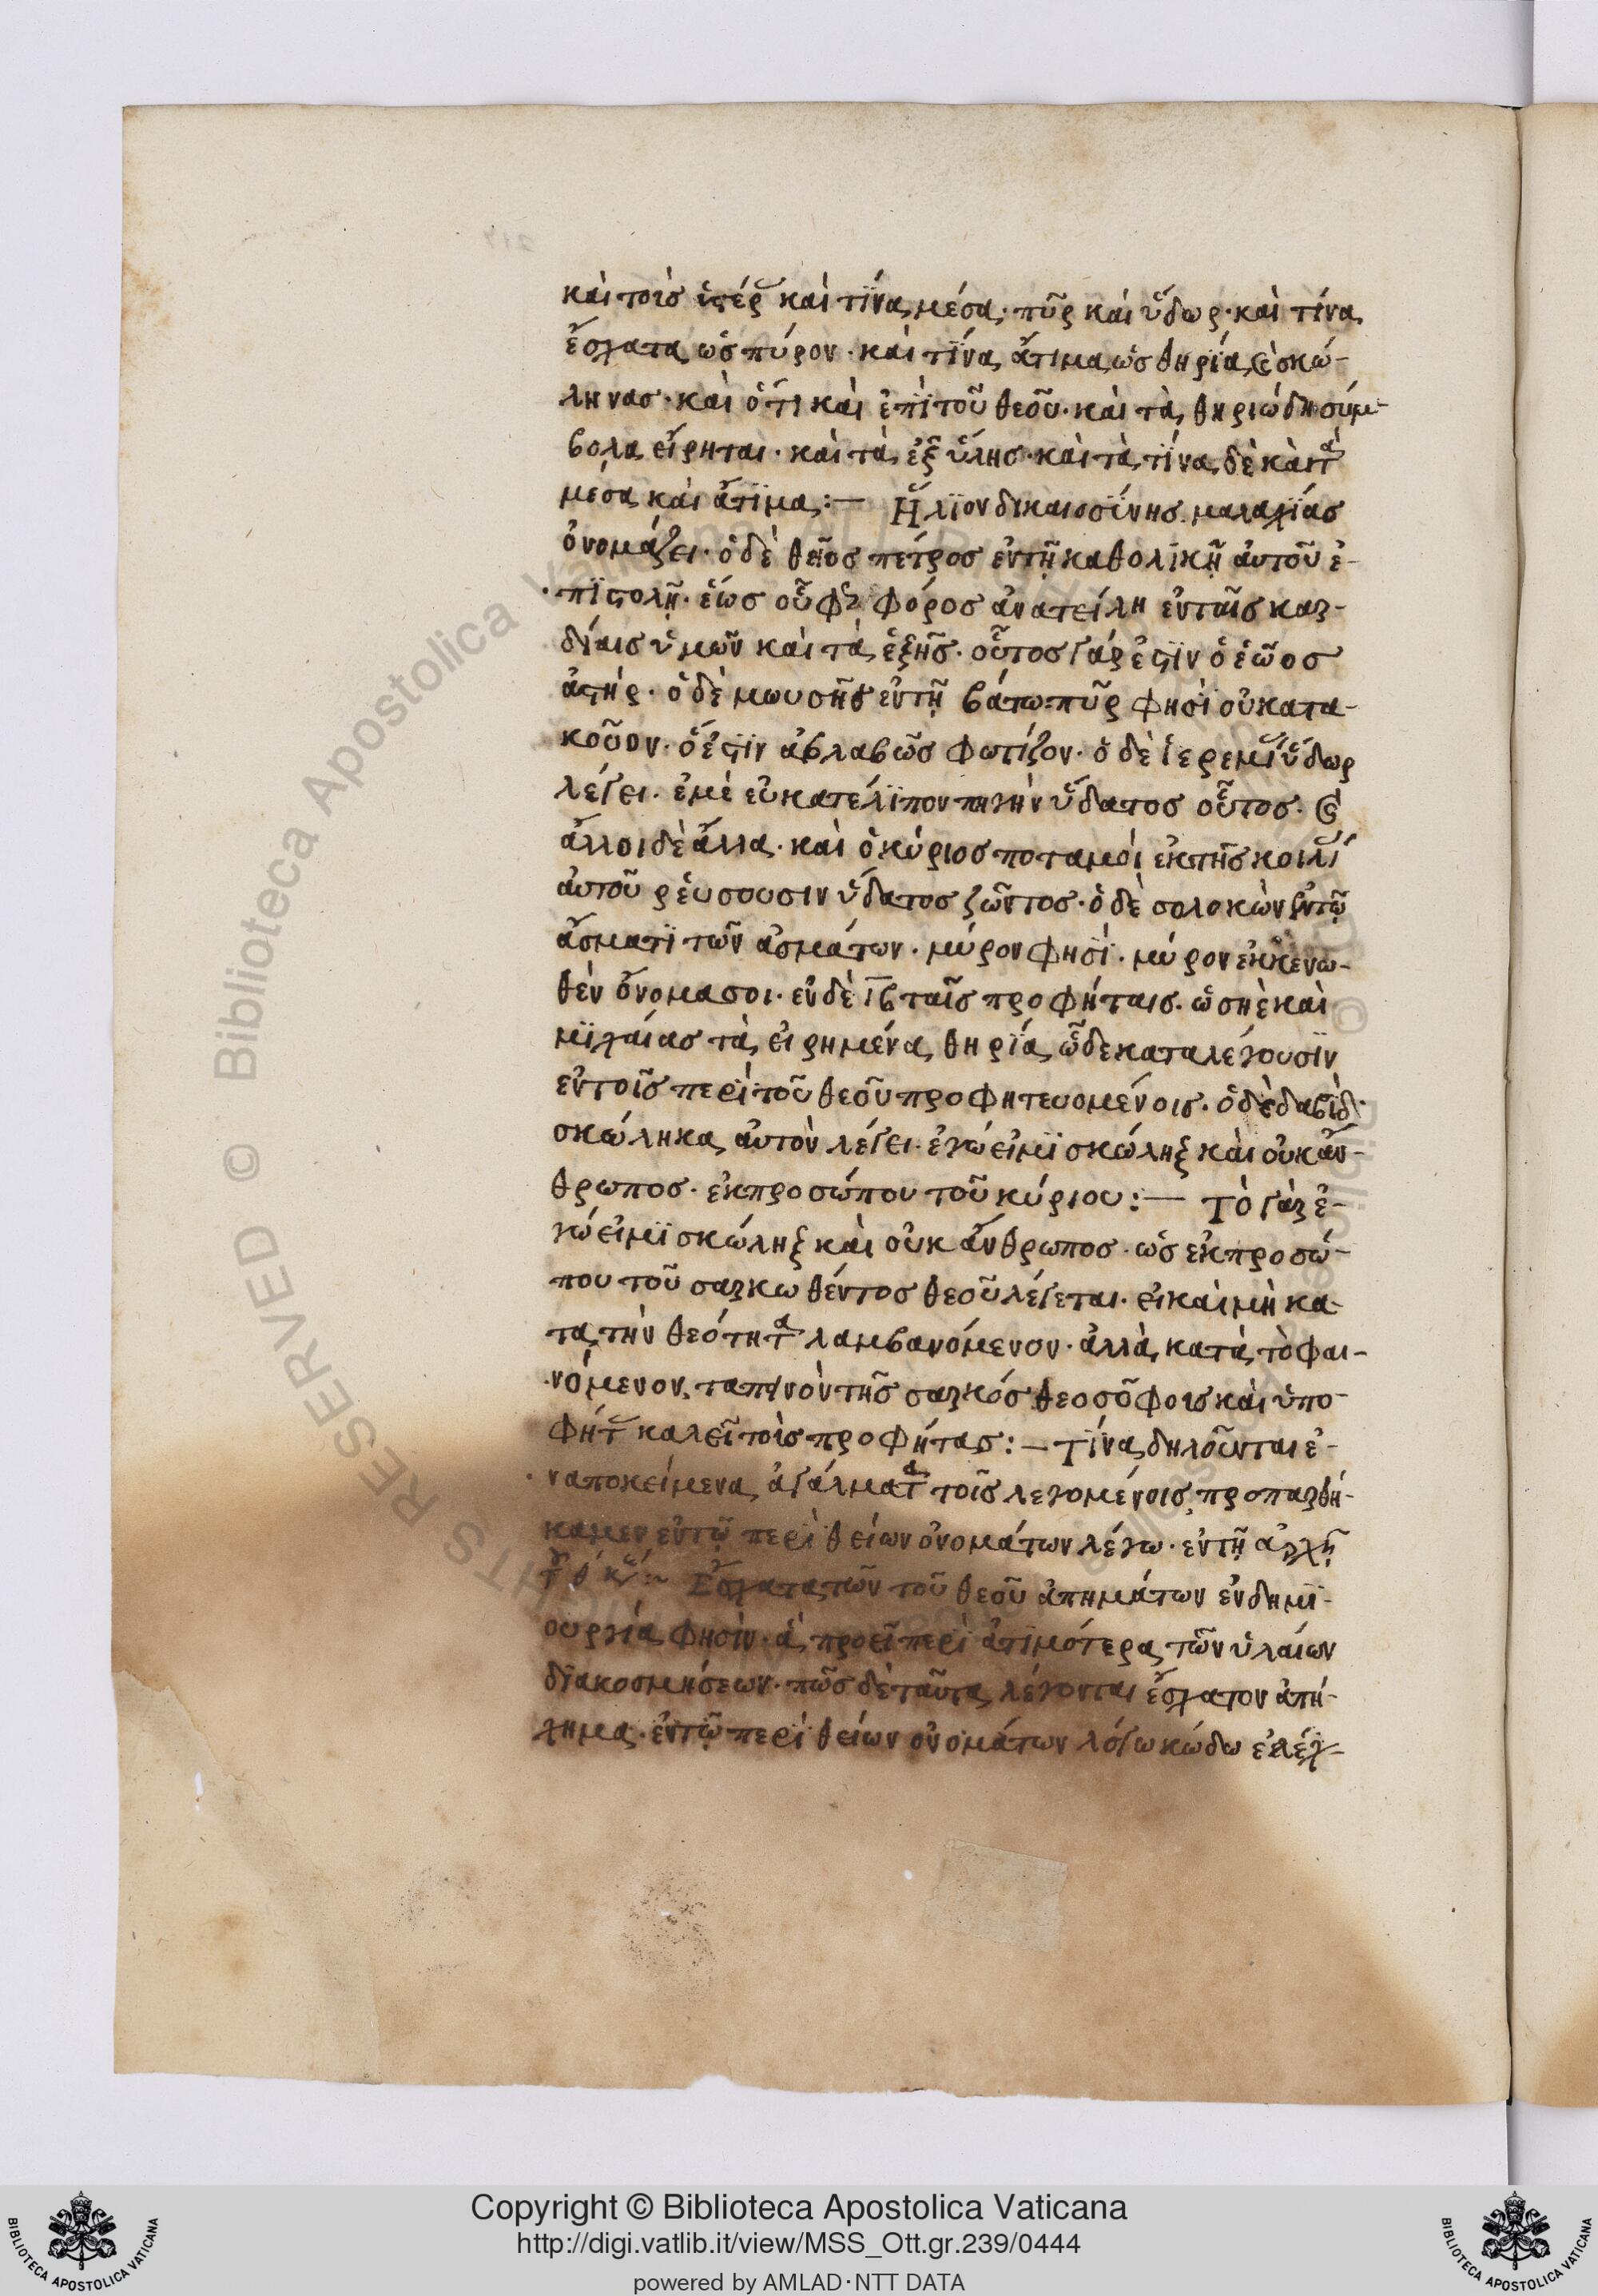 καὶ τοὶσ ἀστέρ καὶ τίνα μέσα· πῦρ καὶ ὕδωρ· καὶ τίνα
ἔσχατα, ὡσ πύρον· καὶ τίνα ἄτιμα, ὡσ θηρία, καὶ σκώ-
ληνασ· καὶ ὅτι καὶ ἐπὶ τοῦ θεοῦ· καὶ τὰ θηριώδη σύμ-
βολα εἴρηται· καὶ τὰ ἐξ ὕλησ· καὶ τὰ τίνα δὲ καὶ τὰ
μεσα καὶ ἄτϊμα:— Ἥλϊον δικαιοσΐνησ μαλαχΐασ
ὀνομάζει· ὁ δὲ θεῖοσ πέτροσ ἐν τῇ καθολϊκῇ αὐτοῦ ἐ-
πϊστολῇ· ἕωσ οὗ φωσφόροσ ἀνατείλη ἐν ταῖσ καρ-
δίαισ ὑμῶν καὶ τὰ ἑξῆσ· οὗτοσ γάρ ἐστϊν ὁ ἑῶοσ
ἀστήρ· ὁ δὲ μωυσῆσ ἐν τῇ βάτω πῦρ φησὶ οὐ κατα-
κοῦον· ὅ ἐστϊν ἀβλαβῶσ φωτίζον· ὁ δὲ ἱερεμΐ ὕδωρ
λέγει· ἐμὲ εὐκατέλϊπον πηγὴν ὕδατοσ οὗτοσ· καὶ
ἄλλοι δὲ ἄλλα· καὶ ὁ κύριοσ ποταμοὶ ἐκ τῆσ κοιλΐ
αὐτοῦ ῥεύσουσιν ὕδατοσ ζῶντοσ· ὁ δὲ σολοκὼν ἐν τῷ
ἄσματϊ τῶν ἀσμάτων· μύρον φησΐ· μύρον ἐκκενω-
θὲν ὄνομα σοι· ἐν δὲ ιβ ταῖσ προφήταισ· ὡσηὲ καὶ
μϊχαίασ τὰ εἰρημένα θηρΐα, ὧδε καταλέγουσϊν
ἐν τοῖσ περὶ τοῦ θεοῦ προφητευομένοισ· ὁ δὲ δαβὶδ
σκώληκα αὐτὸν λέγει· ἐγώ εἰμϊ σκώληξ καὶ οὐκ ἄν-
θρωποσ· ἐκ προσώπου τοῦ κύριου:— Τὸ γὰρ ἐ-
γώ εἰμϊ σκώληξ καὶ οὐκ ἄνθρωποσ· ὡσ ἐκ προσώ-
που τοῦ σαρκωθέντοσ θεοῦ λέγεται· εἰ καὶ μὴ κα-
τα τὴν θεότητα λαμβανόμενον· ἀλλὰ κατὰ τὸ φαι-
νόμενον, ταπινὸν τῆσ σαρκόσ θεοσόφοισ καὶ ὑπο-
φήτ καλεῖ τοὶσ προφήτασ:— Τίνα δηλοῦνται ἐ-
ναποκείμενα ἀγάλματα τοῖσ λεγομένοισ προπαρθή-
καμεν ἐν τῷ περὶ θείων ὀνομάτων λέγω· ἐν τῇ ἀρχῇ
Ἔσχατα τῶν τοῦ θεοῦ ἀπημάτων ἐν δημϊ-
ουργία φησὶν· ἃ προεῖ περὶ ἀτϊμότερα τῶν ὑλαίων
διακοσμήσεων· πῶσ δὲ ταῦτα λέγονται ἔσχατον ἀπή-
χημα· ἐν τῷ περὶ θείων ὀνομάτων λόγω κώδω ἐλέχ-
Copyright © Biblioteca Apostolica Vaticana
http://digi.vatlib.it/view/MSS_Ott.gr.239/0444
powered by AMLAD·NTT DATA